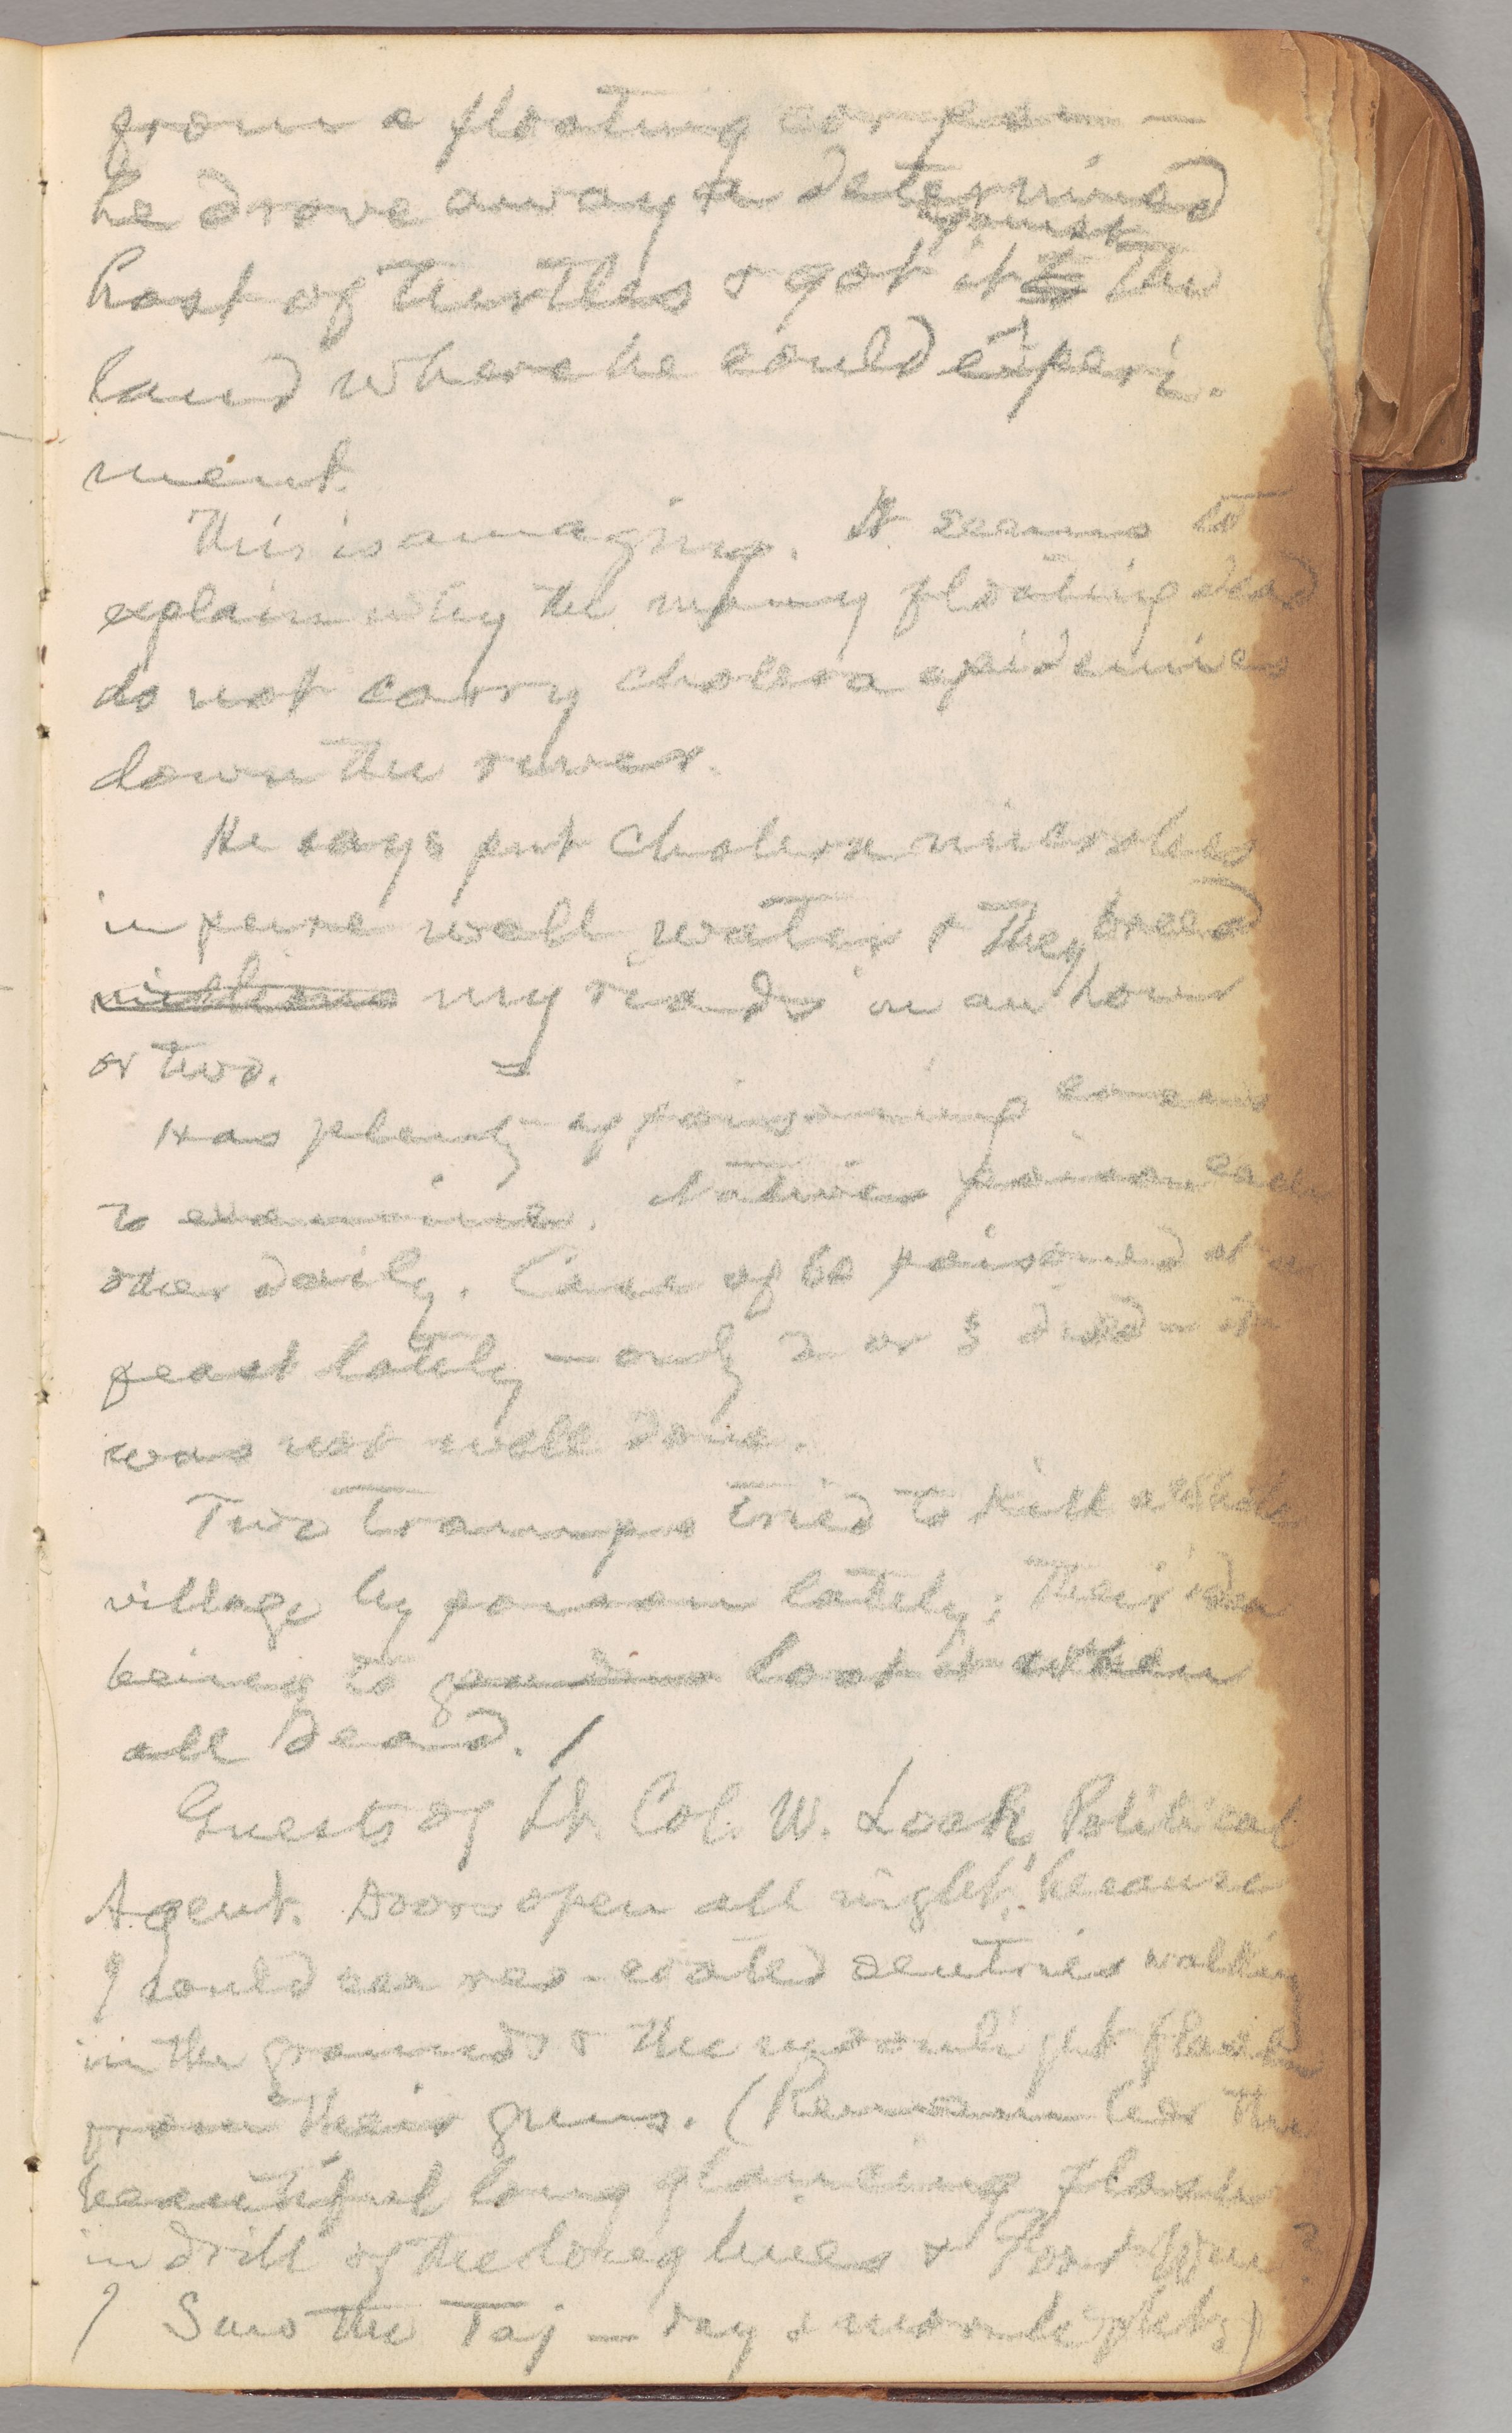 from a floating corpse —
he drove away a determined
against
host of turtles & got it to the
land where he could experi-
ment.
This is amazing. It seems to
explain why the many floating dead
do not carry cholera epidemics
down the river.
He says put cholera microbes
in pure well water & they breed
millions myriads in an hour
or two.
Has plenty of poisoning cases
to examine. Natives poison each
other daily. Case of 60 poisoned at a
feast lately — only 2 or 3 died — it
was not well done.
Two tramps tried to kill a whole
village by poison lately; their idea
being to loot it when
all dead. /
Guests of Lt. Col. W. Loch, Political
Agent. Doors open all night, because
I could see red-coated sentries walking
in the grounds & the moonlight flash
from their guns. (Remember the
beautiful long glancing flash
in drill of the long lines &
Saw the Taj — day & moonlight)